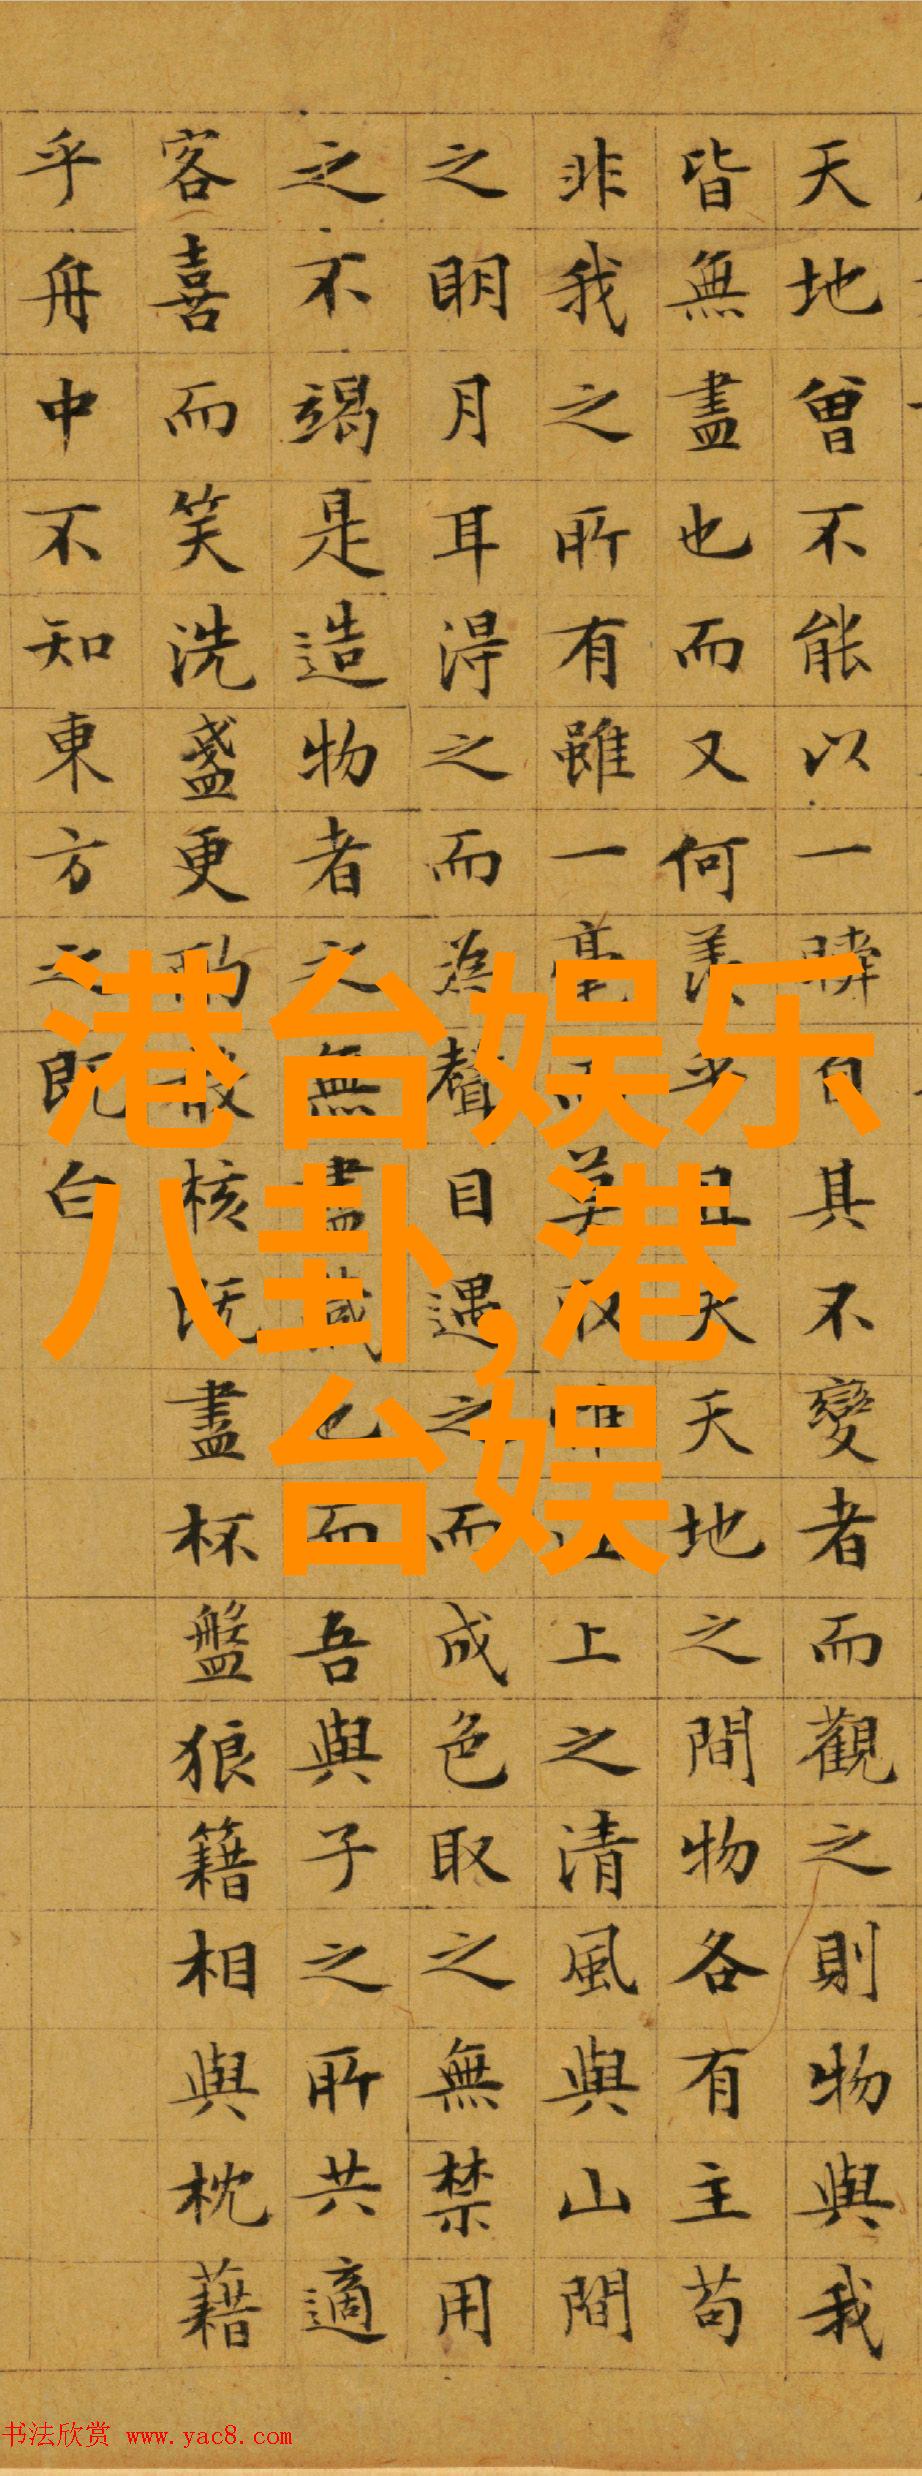 天地曾不能以一瞬自其不變者而觀之則物與我
皆無盡也而又何羨乎且夫天地之間物各有主苟
非我之所有雖一毫莫取惟上之清風與山間
之明月耳得之而為聲目遇之而成色取之無禁用
之不竭是造物者之無盡藏也而吾與子之所共適
客喜而笑洗盞更酌核既盡杯盤狼籍相與枕藉
乎舟中不知東方之既白
港台娱乐
八卦,港
台娱
书法欣赏 www.yac8.com